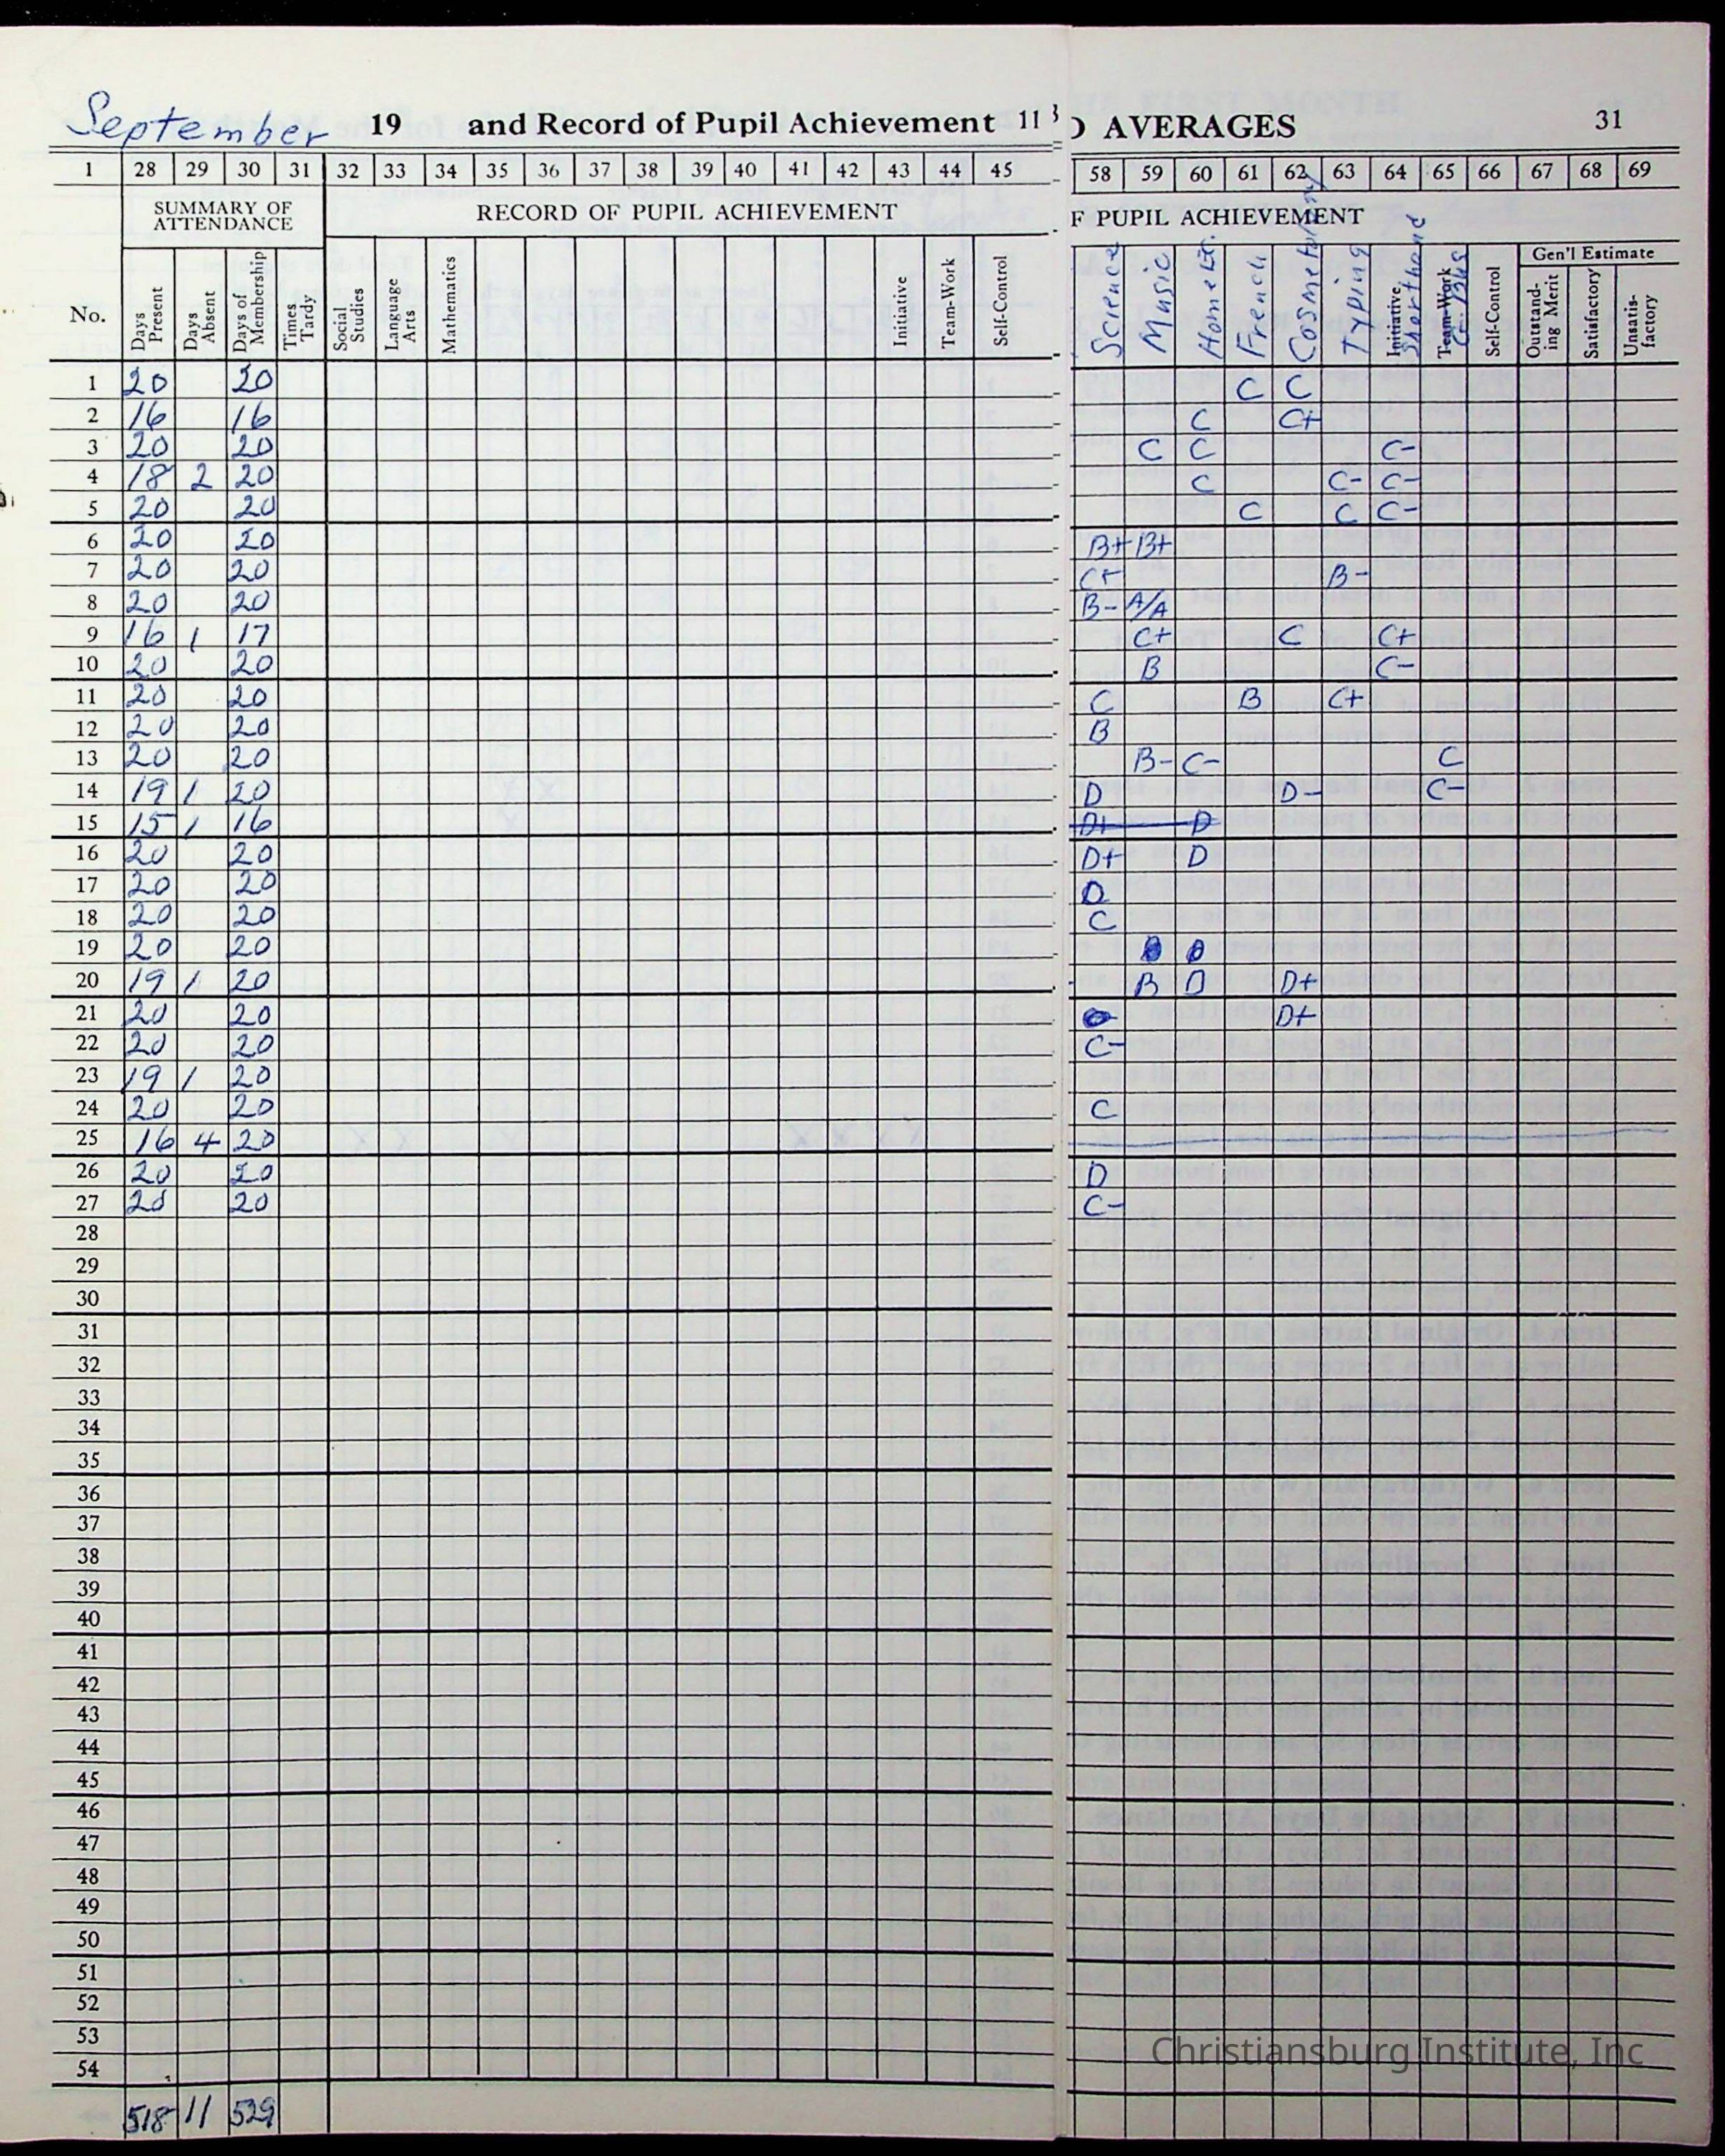 September 19 and Record of Pupil Achievement 11 D AVERAGES 31
1 28 29 30 31 32 33 34 35 36 37 38 39 40 41 42 43 44 45 58 59 60 61 62 63 64 65 66 67 68 69
SUMMARY OF ATTENDANCE RECORD OF PUPIL ACHIEVEMENT F PUPIL ACHIEVEMENT
Gen'l Estimate
No. Days Present Days Absent Days of Membership Times Tardy Social Studies Language Arts Mathematics Initiative Team-Work Self-Control Science Music Home Ec. French Cosmetology Typing Initiative Shorthand Team-Work Self-Control Outstanding Merit Satisfactory Unsatisfactory
1 20 20 C C
2 16 16 C C+
3 20 20 C C C-
4 18 2 20 C C- C-
5 20 20 C C C-
6 20 20 B+ B+
7 20 20 C+ B-
8 20 20 B- A/A
9 16 1 17 C+ C C+
10 20 20 B C-
11 20 20 C B C+
12 20 20 B
13 20 20 B- C- C
14 19 1 20 D D- C-
15 15 1 16 D+ D
16 20 20 D+ D
17 20 20 D
18 20 20 C
19 20 20
20 19 1 20 B D D+
21 20 20 D+
22 20 20 C-
23 19 1 20
24 20 20 C
25 16 4 20
26 20 20 D
27 20 20 C-
28
29
30
31
32
33
34
35
36
37
38
39
40
41
42
43
44
45
46
47
48
49
50
51
52
53
54
518 11 529
Christiansburg Institute, Inc